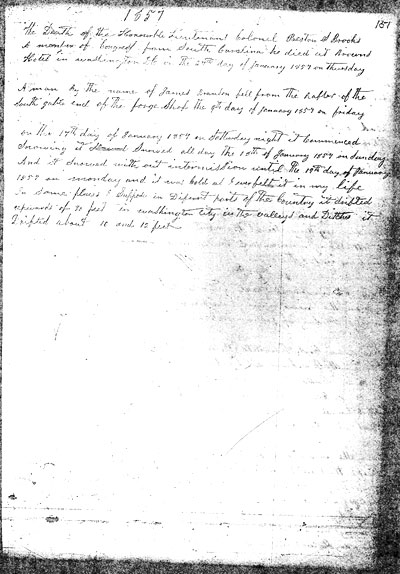 1857
151
The Death of the Honourable Lieutenant Colonel Preston S Brooks
A member of Congress from South Carolina he died at Browns
Hotel in washington City on the 27th day of January 1857 on thursday
A man by the name of James fell from the Rafter of the
South gable end of the forge Shop the 9th day of January 1857 on friday
on the 17th day of January 1857 on Satturday night it Commenced
Snowing it Snowed all day the 18th of January 1857 on Sunday
And it Snowed with out intermission until the 19th day of January
1857 on monday and it was Cold as I ever felt it in my life
In Some places I Suppose in Diferent parts of the Country it drifted
upwards of feet in washington City in the valleys and Ditches it
Drifted about 10 and 12 feet